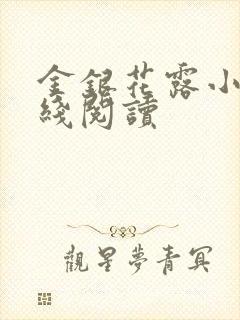 金銀花露小
綫閱讀
觀星夢青冥